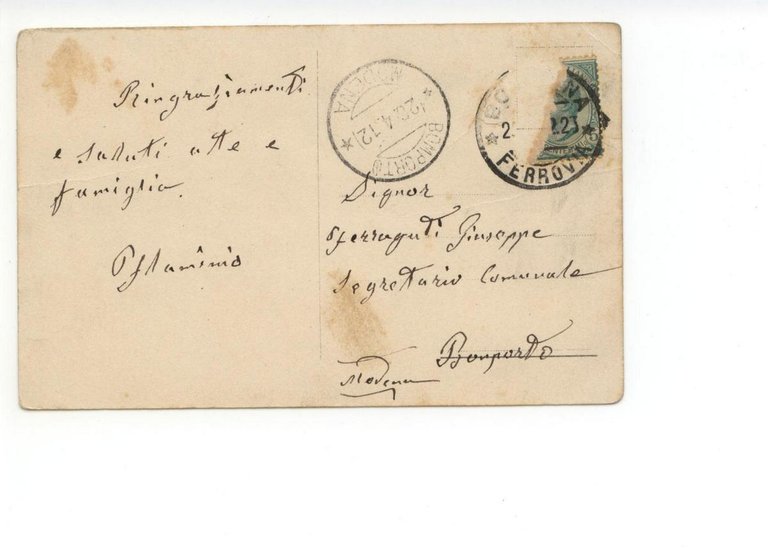 Ringraziamenti
e saluti a te e
famiglia.
Flaminio
BOMPORTO
MODENA
28.4.12
BOLOGNA
FERROVIA
Signor
Ferraguti Giuseppe
Segretario Comunale
Bomporto
Modena